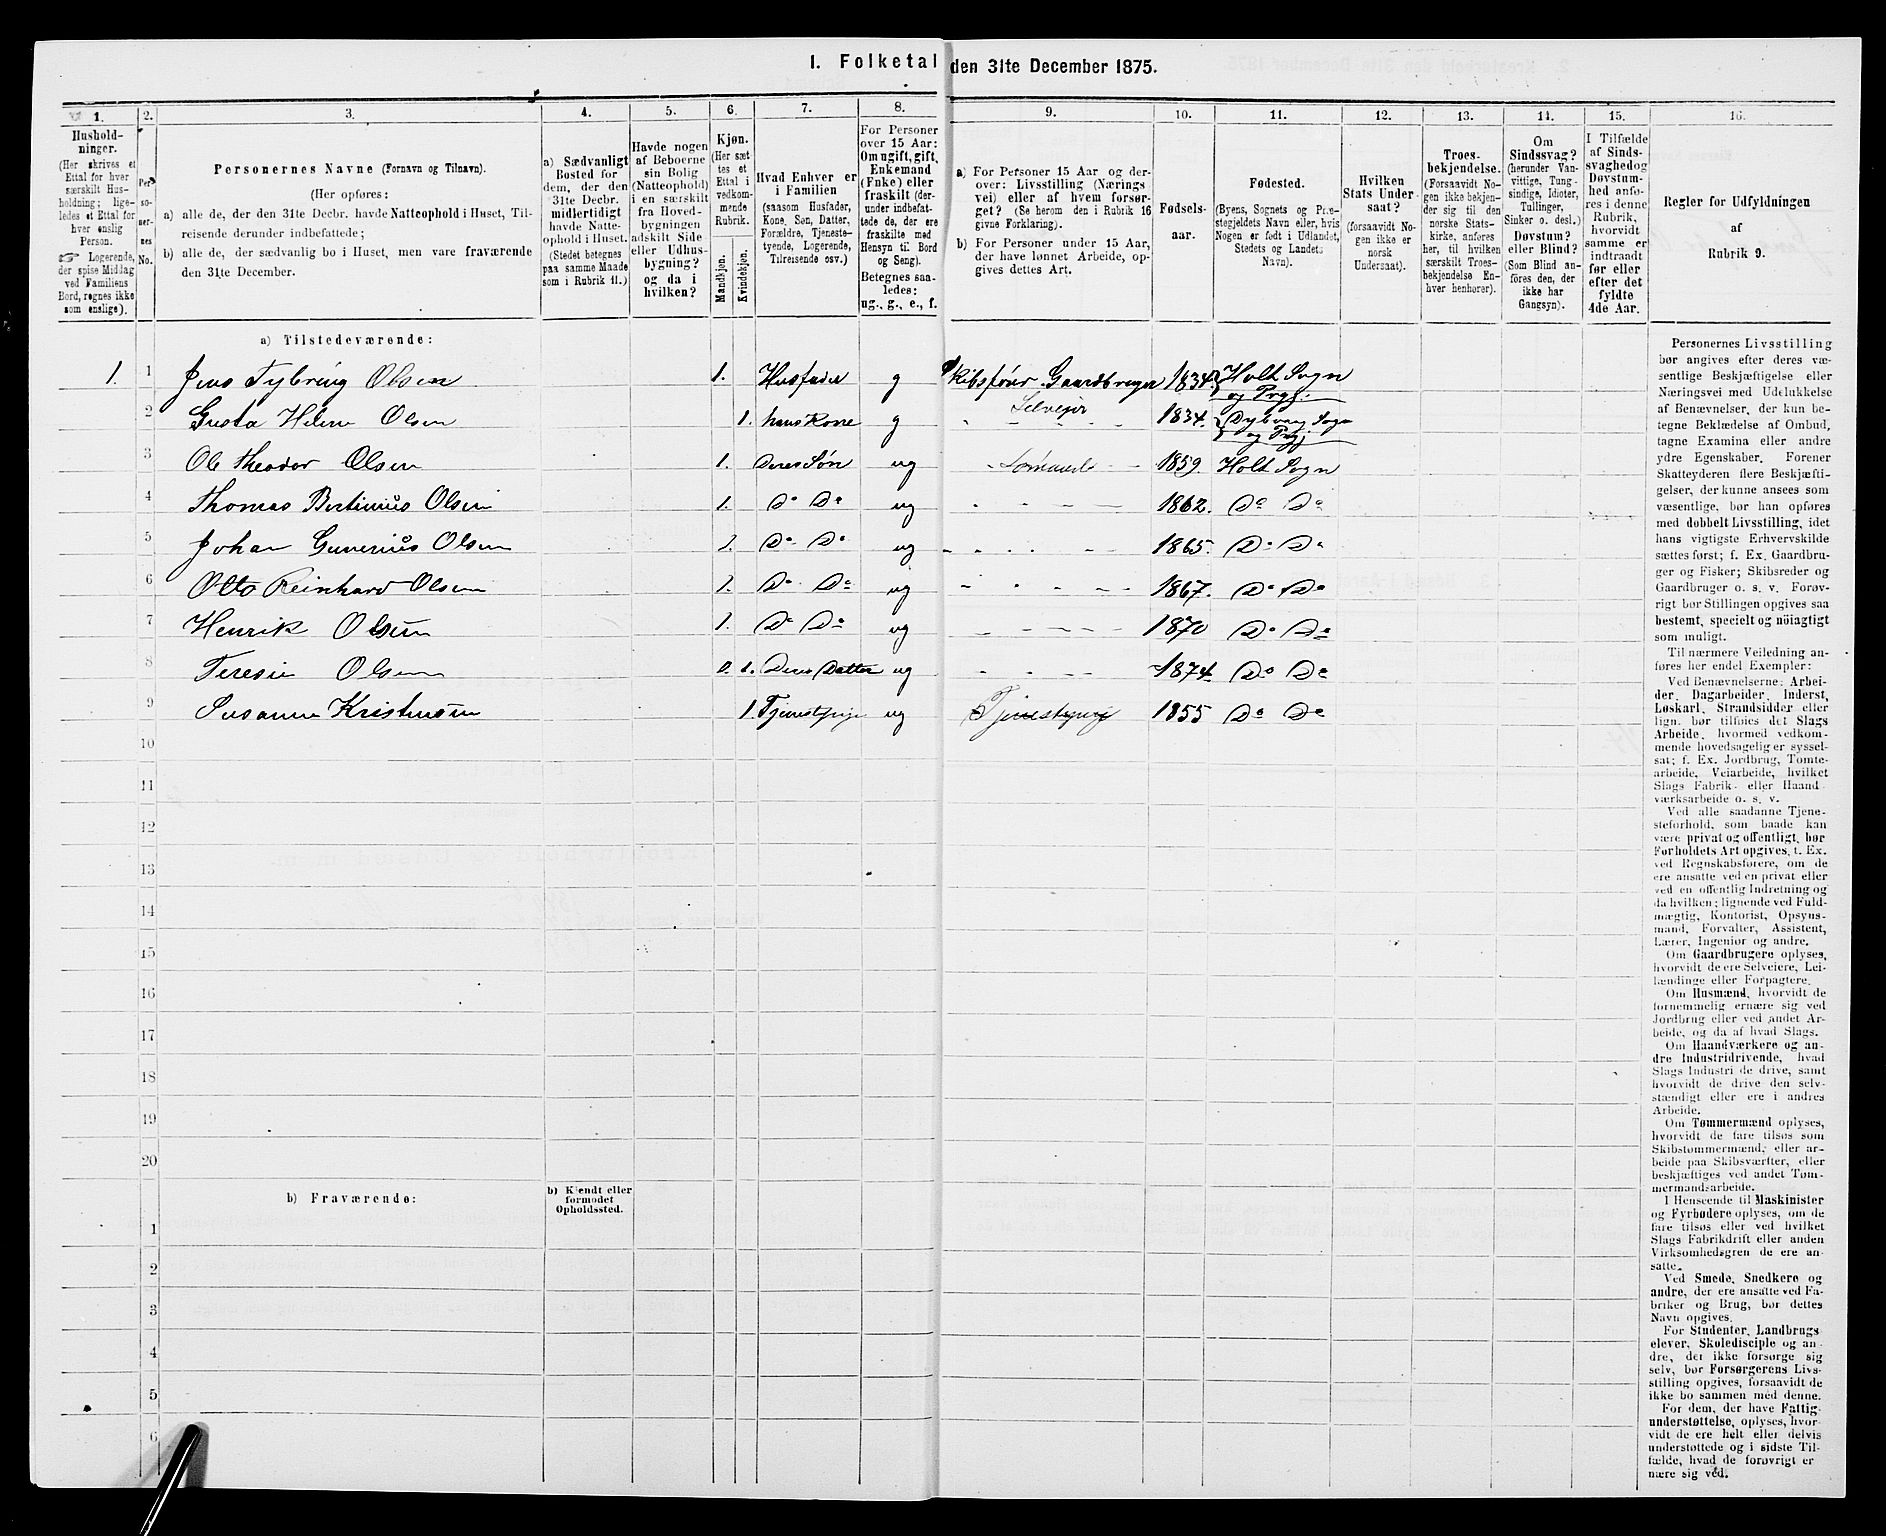 1. Folketal den 31te December 1875.
1. 2. 3. 4. 5. 6. 7. 8. 9. 10. 11. 12. 13. 14. 15. 16.
Hushold-
ninger.
(Her skrives et
Ettal for hver
særskilt Hus-
holdning; lige-
ledes et Ettal for
hver enslig
Person.
☞ Logerende,
der spise Middag
ved Familiens
Bord, regnes ikke
som enslige).
Per-
so-
ner-
nes
No.
Personernes Navne (Fornavn og Tilnavn).
(Her opføres:
a) alle de, der den 31te Decbr. havde Natteophold i Huset, Til-
reisende derunder indbefattede;
b) alle de, der sædvanlig bo i Huset, men vare fraværende
den 31te December.
a) Sædvanligt
Bosted for
dem, der den
31te Decbr.
midlertidigt
havde Natte-
ophold i Huset.
(Stedet betegnes
paa samme Maade
som i Rubrik 11.)
Havde nogen
af Beboerne
sin Bolig
(Natteophold)
i en særskilt
fra Hoved-
bygningen
adskilt Side
eller Udhus-
bygning?
og da i
hvilken?
Kjøn.
(Her sæt-
tes et
Ettal i
vedkom-
mende
Rubrik.
Mandkjøn.
Kvindekjøn.
Hvad Enhver er
i Familien
(saasom Husfader,
Kone, Søn, Datter,
Forældre, Tjeneste-
tyende, Logerende,
Tilreisende osv.)
For Personer
over 15 Aar:
Om ugift, gift,
Enkemand
(Enke) eller
fraskilt (der-
under indbefat-
tede de, der ere
fraskilte med
Hensyn til Bord
og Seng).
Betegnes saa-
ledes:
ug., g., e., f.
a) For Personer 15 Aar og der-
over: Livsstilling (Nærings
vei) eller af hvem forsør-
get? (Se herom den i Rubrik 16
givne Forklaring).
b) For Personer under 15 Aar,
der have lønnet Arbeide, op-
gives dettes Art.
Fødsels-
aar.
Fødested.
(Byens, Sognets og Præ-
stegjeldets Navn eller, hvis
Nogen er født i Udlandet,
Stedets og Landets
Navn).
Hvilken
Stats Under-
saat?
(forsaavidt No-
gen ikke er
norsk
Undersaat).
Troes-
bekjendelse.
(Forsaavidt No-
gen ikke bekjen-
der sig til den
norske Stats-
kirke, anføres
her, til hvilken
særskilt Troes-
bekjendelse En-
hver henhører).
Om
Sindssvag?
(herunder Van-
vittige, Tung-
sindige, Idioter,
Tullinger,
Sinker o. desl.)
Døvstum?
eller Blind?
(Som Blind an-
føres den, der
ikke har
Gangsyn).
I Tilfælde
af Sinds-
svaghed og
Døvstum-
hed anfø-
res i denne
Rubrik,
hvorvidt
samme er
indtraadt
før eller
efter det
fyldte
4de Aar.
Regler for Udfyldningen
af
Rubrik 9.
a) Tilstedeværende:
1. 1 Jens Tybring Olsen 1. Husfader g Skibsfører Gaardbruger 1834. Holt Sogn
og Prgj.
2 Gusta Helene Olsen 1. hans Kone g Selveier 1834. Dybvaag Sogn
og Prgj
3 Ole Theodor Olsen 1. Deres Søn ug Sømand 1859 Holt Sogn
4 Thomas Bertinius Olsen 1. Do Do ug 1862. Do Do
5 Johan Gunerius Olsen 1. Do Do ug 1865. Do Do
6 Otto Reinhard Olsen 1. Do Do ug 1867. Do Do
7 Henrik Olsen 1. Do Do ug 1870 Do Do
8 Teresie Olsen 0. 1. Deres Datter ug 1874 Do Do
9 Susanne Kristensen 1. Tjenestepige ug Tjenestepige 1855 Do Do
10
11
12
13
14
15
16
17
18
19
20
b) Fraværende:
b) Kjendt eller
formodet
Opholdssted.
1
2
3
4
5
6
Personernes Livsstilling
bør angives efter deres væ-
sentlige Beskjæftigelse eller
Næringsvei med Udelukkelse
af Benævnelser, der kun be-
tegne Beklædelse af Ombud,
tagne Examina eller andre
ydre Egenskaber. Forener
Skatteyderen flere Beskjæfti-
gelser, der kunne ansees som
væsentlige, bør han opføres
med dobbelt Livsstilling, idet
hans vigtigste Erhvervskilde
sættes først; f. Ex. Gaardbru-
ger og Fisker; Skibsreder og
Gaardbruger o. s. v. Forøv-
rigt bør Stillingen opgives saa
bestemt, specielt og nöiagtigt
som muligt.
Til nærmere Veiledning an-
føres her endel Exempler:
Ved Benævnelserne: Arbei-
der, Dagarbeider, Inderst,
Løskarl, Strandsidder eller
lign. bør tilføies det Slags
Arbeide, hvormed vedkom-
mende hovedsagelig er syssel-
sat; f. Ex. Jordbrug, Tomte-
arbeide, Veiarbeide, hvilket
Slags Fabrik- eller Haand
værksarbeide o. s. v.
Ved alle saadanne Tjene-
steforhold, som baade kan
være privat og offentligt, bør
Forholdets Art opgives, f. Ex.
ved Regnskabsførere, om de
ere ansatte ved en privat eller
ved en offentlig Indretning og
da hvilken; lignende ved Fuld-
mægtig, Kontorist, Opsyns-
mand, Forvalter, Assistent,
Lærer, Ingeniør og andre.
Om Gaardbrugere oplyses,
hvorvidt de ere Selveiere, Lei-
lændinge eller Forpagtere.
Om Husmænd, hvorvidt de
fornemmelig ernære sig ved
Jordbrug eller ved andet Ar-
beide, og da af hvad Slags.
Om Haandværkere og an-
dre Industridrivende, hvad
Slags Industri de drive, samt
hvorvidt de drive den selv-
stændigt eller ere i andres
Arbeide.
Om Tømmermænd oplyses,
hvorvidt de fare tilsøs som
Skibstømmermænd, eller ar-
beide paa Skibsværfter, eller
beskjæftiges ved andet Tøm-
mermandsarbeide.
I Henseende til Maskinister
og Fyrbødere oplyses, om de
fare tilsøs eller ved hvilket
Slags Fabrikdrift eller anden
Virksomhedsgren de ere an-
satte.
Ved Smede, Snedkere og
andre, der ere ansatte ved Fa-
briker og Brug, bør dettes
Navn opgives.
For Studenter, Landbrugs
elever, Skoledisciple og an-
dre, der ikke forsørge sig
selv, bør Forsørgerens Livs-
stilling opgives, forsaavidt de
ikke bo sammen med denne.
For dem, der have Fattig-
understøttelse, oplyses, hvor-
vidt de ere helt eller delvis
understøttede og i sidste Til-
fælde, hvad de forøvrigt er
nære sig ved.